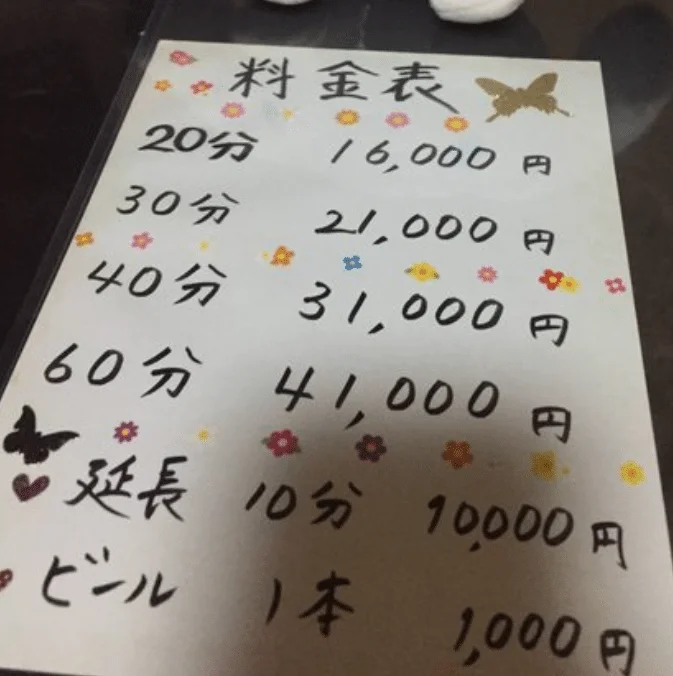 料金表
20分 16,000円
30分 21,000円
40分 31,000円
60分 41,000円
延長 10分 10,000円
ビール 1本 1,000円